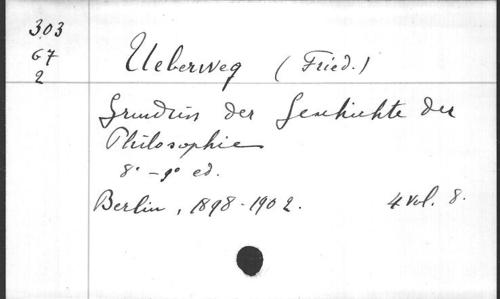 303
67
2
Ueberweg (Fried.)
Grundriss der Geschichte der
Philosophie
8° - 9° ed.
Berlin, 1898-1902. 4 vol. 8.